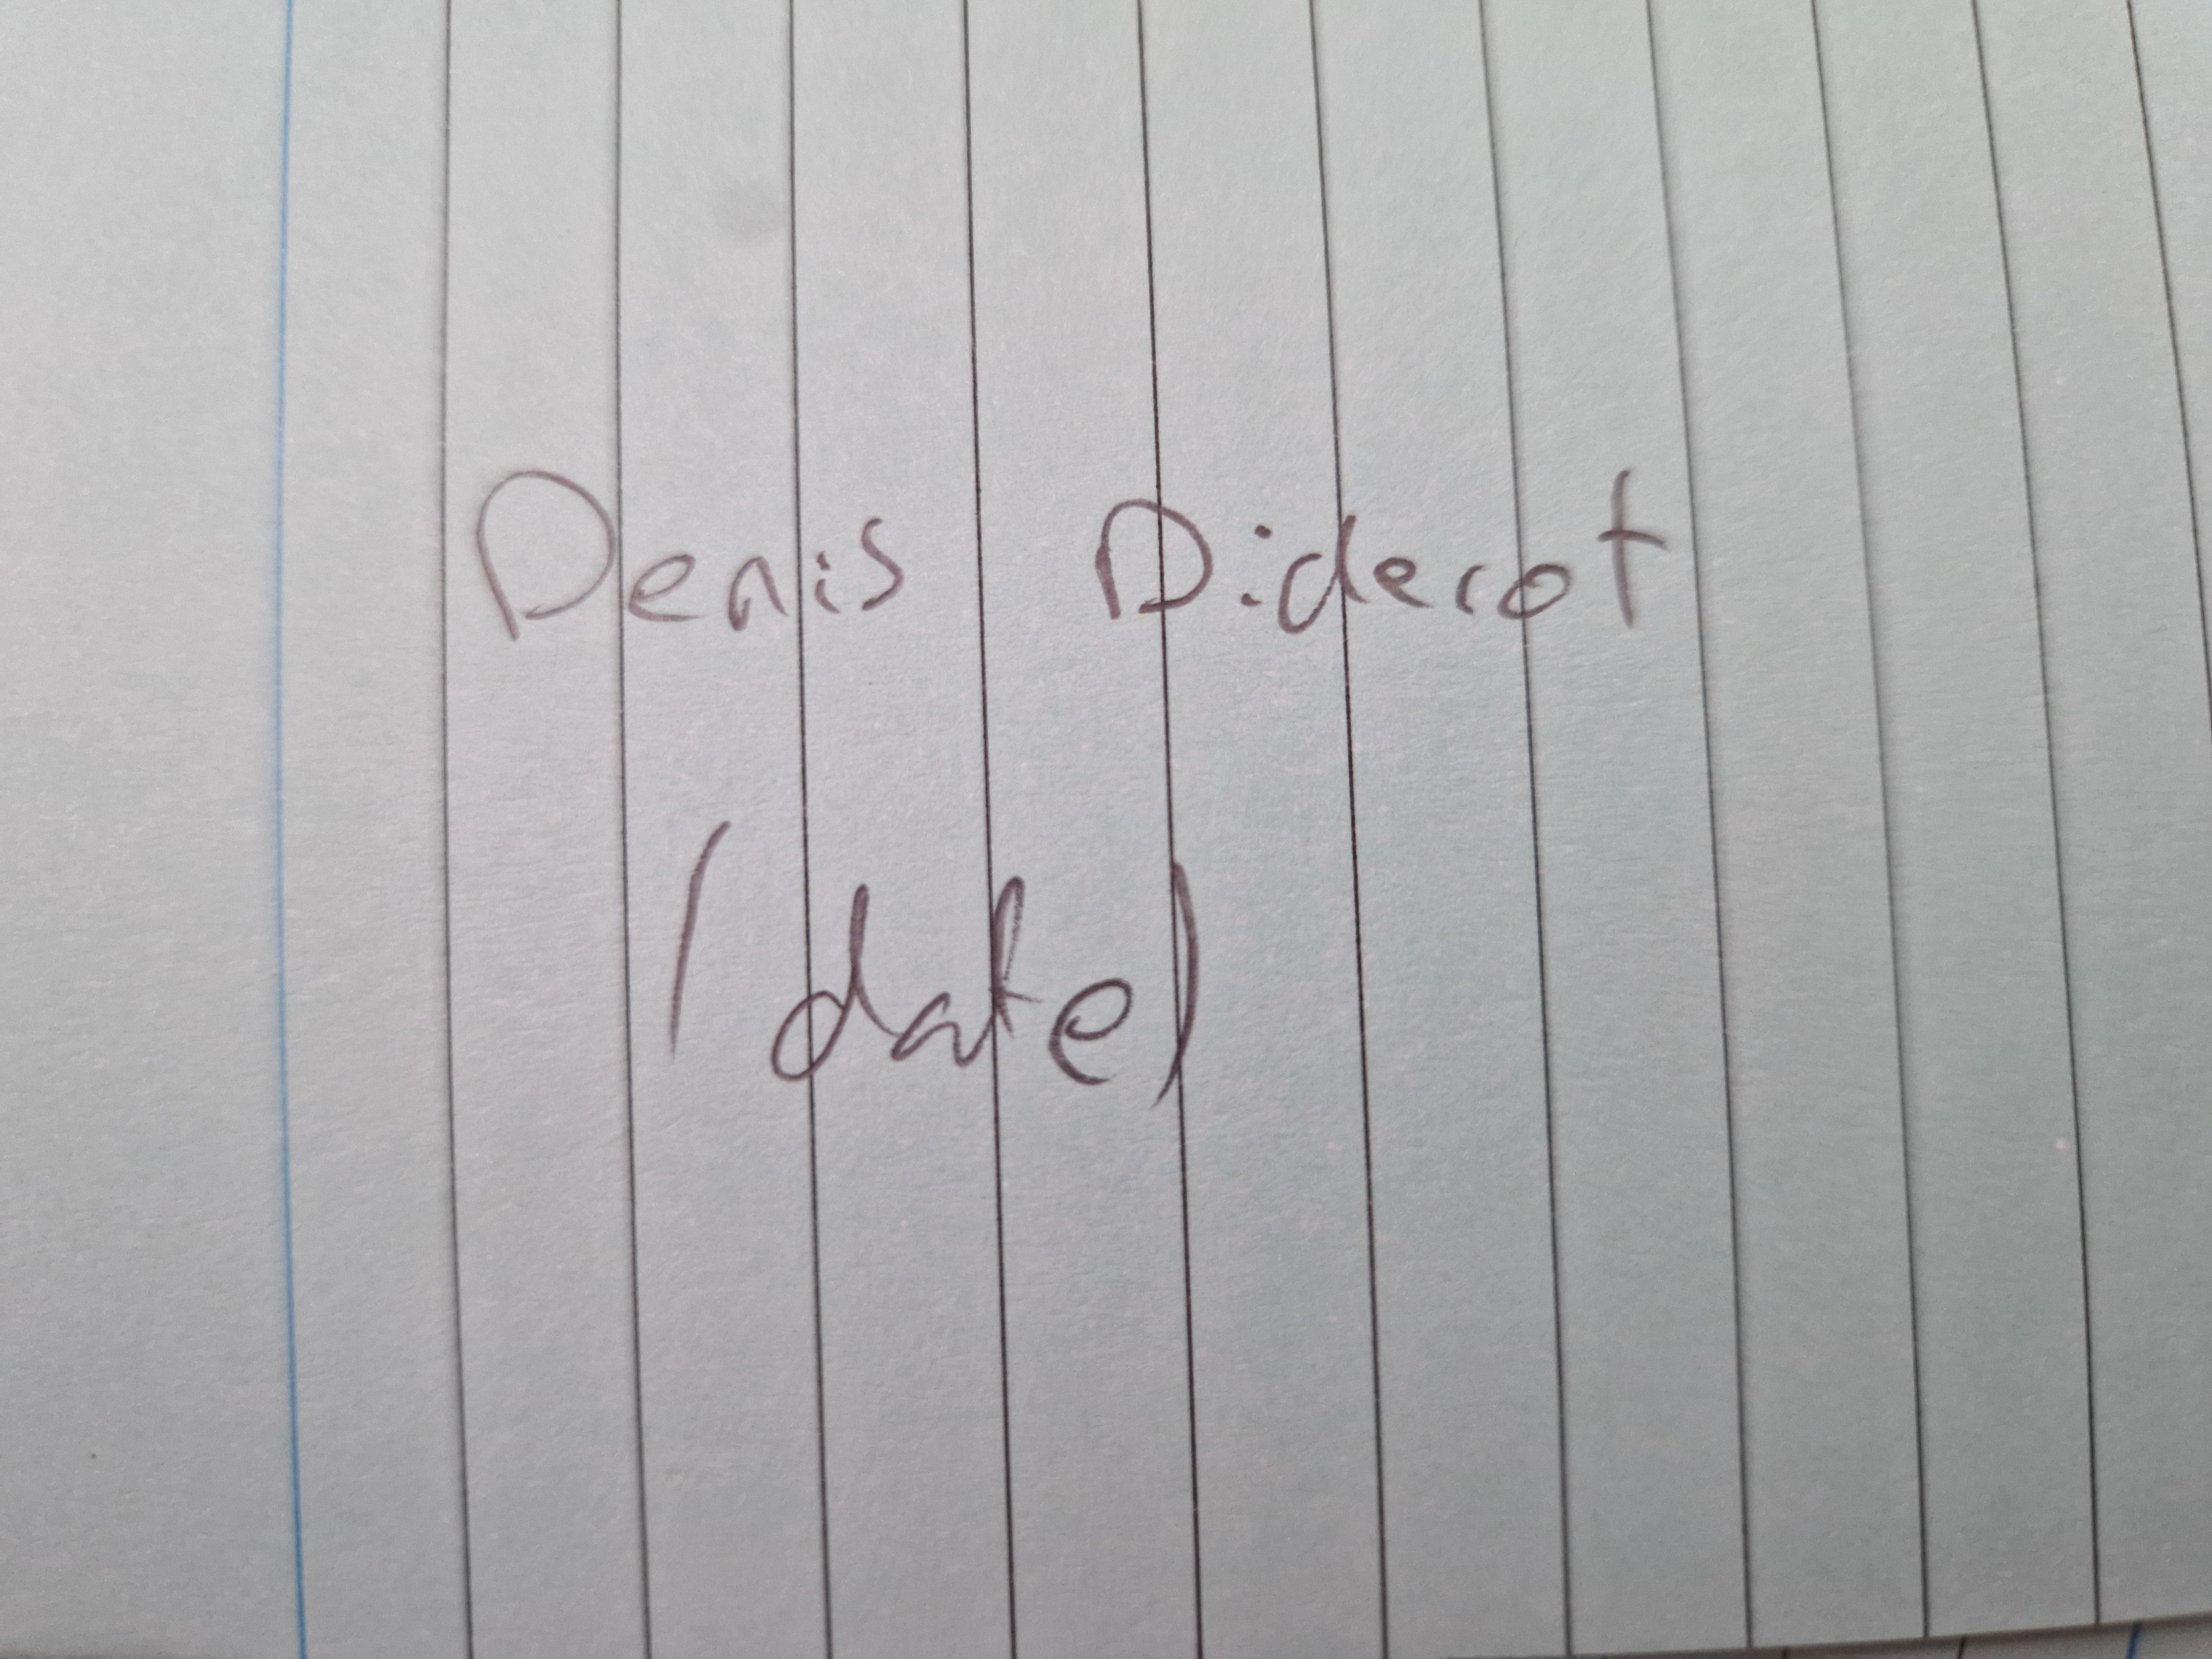 Denis Diderot
(date)